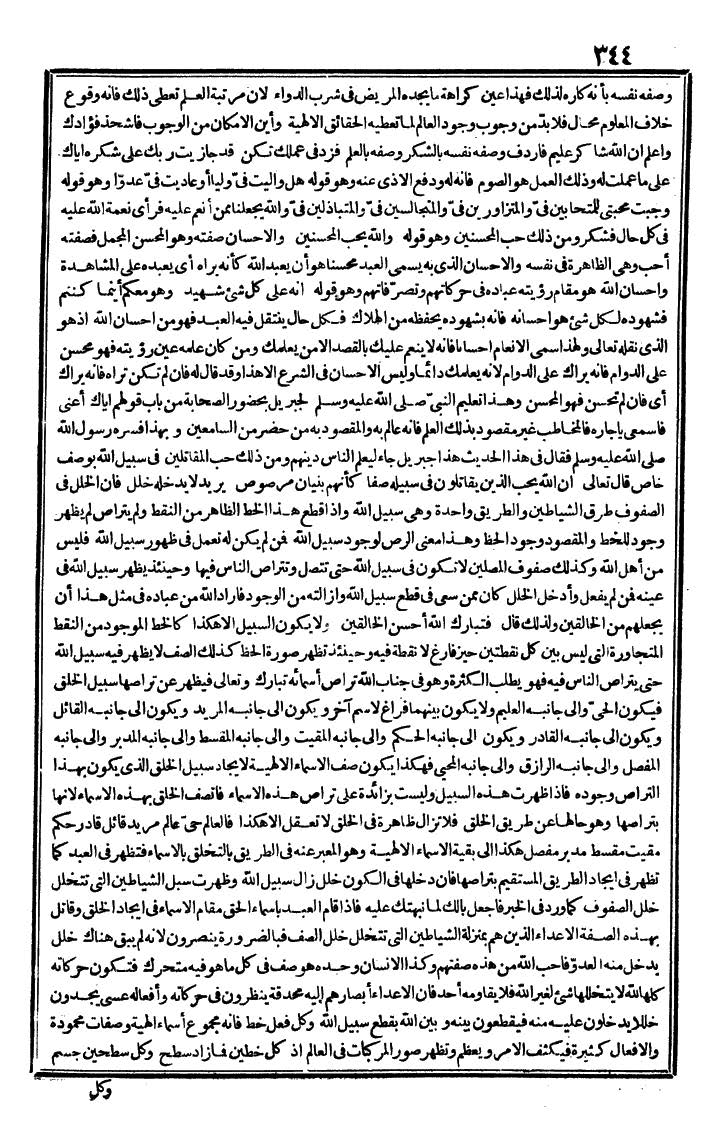 ٣٤٤
وصفه نفسه بأنه كاره لذلك فهذا عين كراهة ما يجده المريض فى شرب الدواء لان مرتبة العلم تعطى ذلك فانه وقوع
خلاف المعلوم محال فلابد من وجوب وجود العالم لما تعطيه الحقائق الالهية وأين الامكان من الوجوب فاشحذ فؤادك
واعلم ان الله شاكر عليم فاردف وصفه نفسه بالشكر وصفه بالعلم فزد فى عملك تكن قد جازيت ربك على شكره اياك
على ما عملت له وذلك العمل هو الصوم فانه له ودفع الاذى عنه وهو قوله هل واليت فىّ وليا أو عاديت فىّ عدوّا وهو قوله
وجبت محبتى للمتحابين فىّ والمتزاورين فىّ والمتجالسين فىّ والمتباذلين فىّ والله يجعلنا ممن أنعم عليه فرأى نعمة الله عليه
فى كل حال فشكر ومن ذلك حب المحسنين وهو قوله والله يحب المحسنين والاحسان صفته وهو المحسن المجمل فصفته
أحب وهى الظاهرة فى نفسه والاحسان الذى به يسمى العبد محسنا هو أن يعبد الله كأنه يراه أى يعبده على المشاهدة
واحسان الله هو مقام رؤيته عباده فى حركاتهم وتصرّفاتهم وهو قوله انه على كل شئ شهيد وهو معكم أينما كنتم
فشهوده لكل شئ هو احسانه فانه بشهوده يحفظه من الهلاك فكل حال ينتقل فيه العبد فهو من احسان الله اذ هو
الذى نقله تعالى ولهذا سمى الانعام احسانا فانه لا ينعم عليك بالقصد الا من يعلمك ومن كان علمه عين رؤيته فهو محسن
على الدوام فانه يراك على الدوام لانه يعلمك دائما وليس الاحسان فى الشرع الا هذا وقد قال له فان لم تكن تراه فانه يراك
أى فان لم تحسن فهو المحسن وهذا تعليم النبىّ صلى الله عليه وسلم لجبريل بحضور الصحابة من باب قولهم اياك أعنى
فاسمعى ياجاره فالمخاطب غير مقصود بذلك العلم فانه عالم به والمقصود به من حضر من السامعين وبهذا فسره رسول الله
صلى الله عليه وسلم فقال فى هذا الحديث هذا جبريل جاء ليعلم الناس دينهم ومن ذلك حب المقاتلين فى سبيل الله بوصف
خاص قال تعالى ان الله يحب الذين يقاتلون فى سبيله صفا كأنهم بنيان مرصوص يريد لا يدخله خلل فان الخلل فى
الصفوف طرق الشياطين والطريق واحدة وهى سبيل الله واذا قطع هذا الخط الظاهر من النقط ولم يتراص لم يظهر
وجود للخط والمقصود وجود الخط وهذا معنى الرص لوجود سبيل الله فمن لم يكن له تعمل فى ظهور سبيل الله فليس
من أهل الله وكذلك صفوف المصلين لا تكون فى سبيل الله حتى تتصل وتتراص الناس فيها وحينئذ يظهر سبيل الله فى
عينه فمن لم يفعل وأدخل الخلل كان ممن سعى فى قطع سبيل الله وازالته من الوجود فاراد الله من عباده فى مثل هذا أن
يجعلهم من الخالقين ولذلك قال فتبارك الله أحسن الخالقين ولا يكون السبيل الا هكذا كالخط الموجود من النقط
المتجاورة التى ليس بين كل نقطتين حيز فارغ لا نقطة فيه وحينئذ تظهر صورة الخط كذلك الصف لا يظهر فيه سبيل الله
حتى يتراص الناس فيه فهو يطلب الكثرة وهو فى جناب الله تراص أسمائه تبارك وتعالى فيظهر عن تراصها سبيل الخلق
فيكون الحىّ والى جانبه العليم ولا يكون بينهما فراغ لاسم آخر ويكون الى جانبه المريد ويكون الى جانبه القائل
ويكون الى جانبه القادر ويكون الى جانبه الحكم والى جانبه المقيت والى جانبه المقسط والى جانبه المدبر والى جانبه
المفصل والى جانبه الرازق والى جانبه المحيى فهكذا يكون صف الاسماء الالهية لايجاد سبيل الخلق الذى يكون بهذا
التراص وجوده فاذا ظهرت هذه السبيل وليست بزائدة على تراص هذه الاسماء فاتصف الخلق بهذه الاسماء لانها
بتراصها وهو حالها عن طريق الخلق فلا تزال ظاهرة فى الخلق لا تعقل الا هكذا فالعالم حىّ عالم مريد قائل قادر حكم
مقيت مقسط مدبر مفصل هكذا الى بقية الاسماء الالهية وهو المعبر عنه فى الطريق بالتخلق بالاسماء فتظهر فى العبد كما
تظهر فى ايجاد الطريق المستقيم بتراصها فان دخلها فى الكون خلل زال سبيل الله وظهرت سبل الشياطين التى تتخلل
خلل الصفوف كما ورد فى الخبر فاجعل بالك لما نبهتك عليه فاذا قام العبد باسماء الحق مقام الاسماء فى ايجاد الخلق وقاتل
بهذه الصفة الاعداء الذين هم بمنزلة الشياطين التى تتخلل خلل الصف فبالضرورة ينصرون لانه لم يبق هناك خلل
يدخل منه العدوّ فاحب الله من هذه صفتهم وكذا الانسان وحده هو صف فى كل ما هو فيه متحرك فتكون حركاته
كلها لله لا يتخللها شئ لغير الله فلا يقاومه أحد فان الاعداء أبصارهم اليه محدقة ينظرون فى حركاته وأفعاله عسى يجدون
خللا يدخلون عليه منه فيقطعون بينه وبين الله بقطع سبيل الله وكل فعل خط فانه مجموع أسماء الهية وصفات محمودة
والافعال كثيرة فيكثف الامر ويعظم وتظهر صور المركبات فى العالم اذ كل خطين فازاد سطح وكل سطحين جسم
وكل